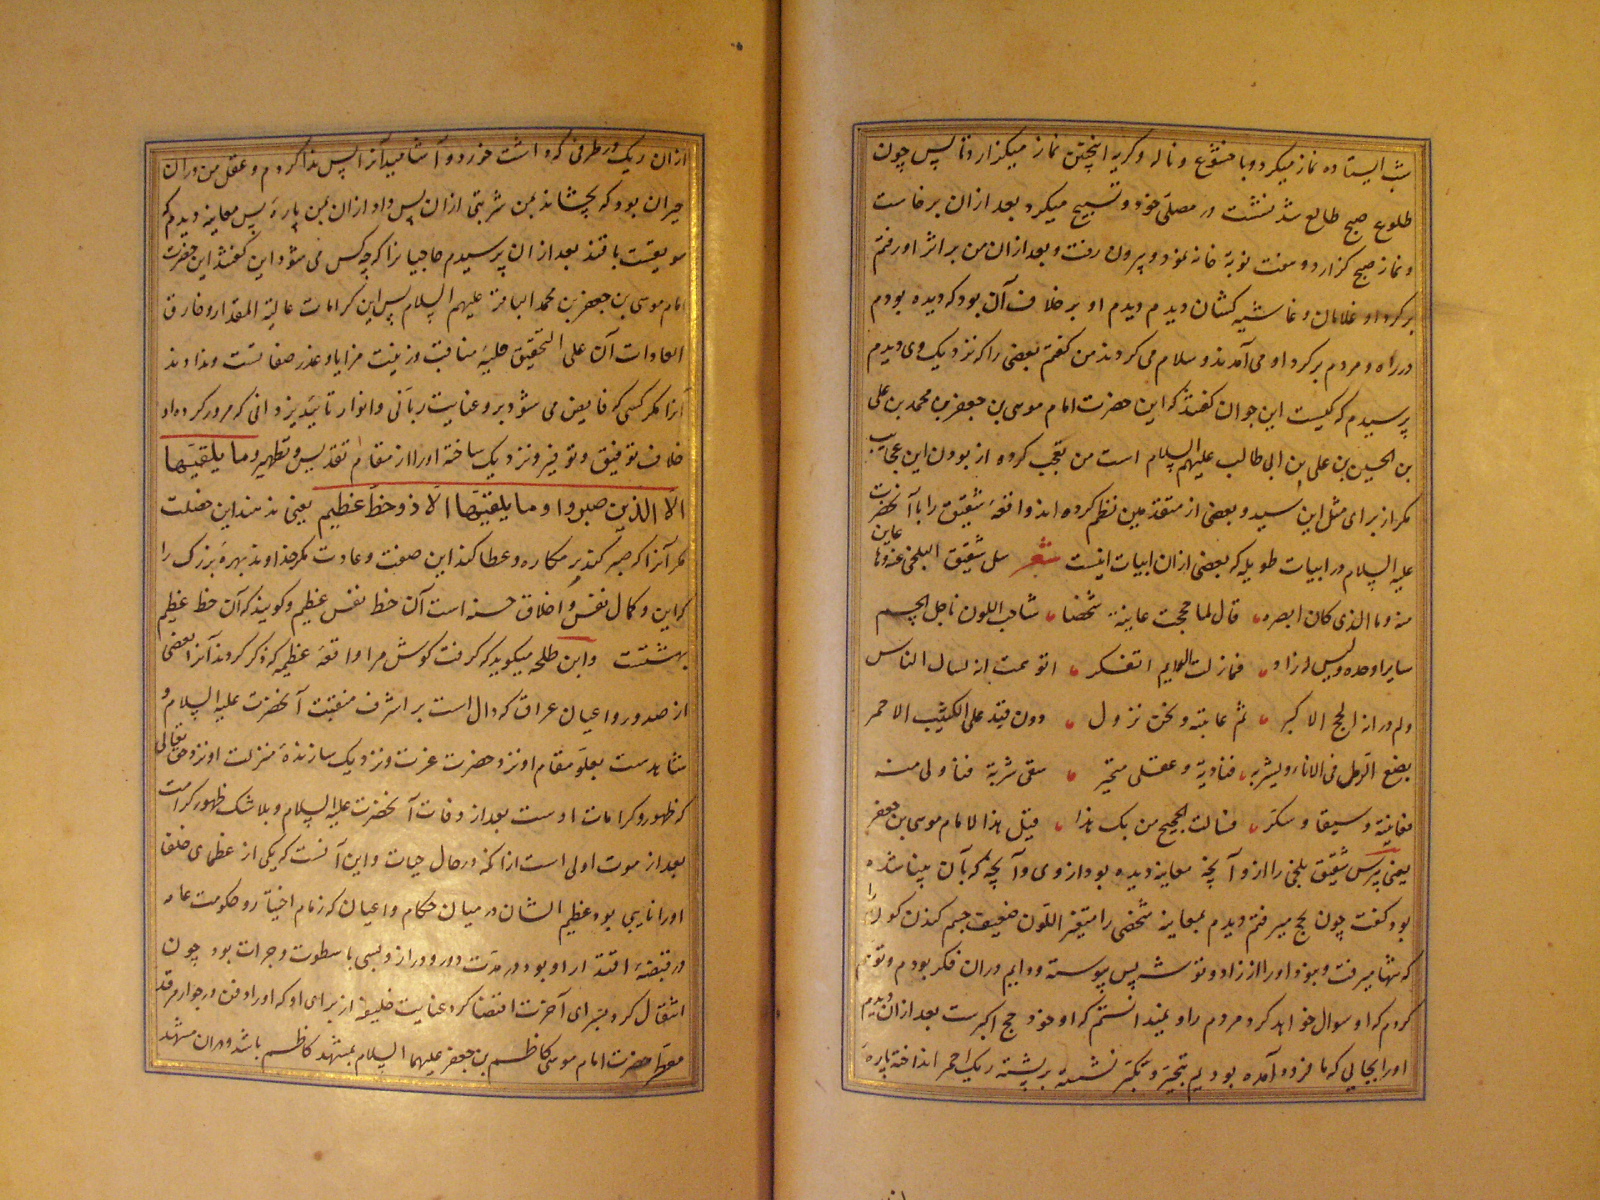 شب ایستاده نماز میکرد و با خشوع و ناله و کریه اینچنین نماز میکذارد تا پس چون
طلوع صبح طالع شد نشست در مصلی خود و تسبیح میکرد بعد ازان برخاست
و نماز صبح کزارد و هفت نوبة خانه نمود و پیرون رفت و بعد ازان من بر اثر او رفتم
بر کرد او غلامان و غاشیه کشان دیدم دیدم او بر خلاف آن بود که دیده بودم
در راه و مردم بر کرد او می آمدند و سلام می کردند من کفتم بعضی را که نزدیک وی دیدم
پرسیدم که کیست این جوان کفتند که این حضرت امام موسی بن جعفر بن محمد بن علی
بن الحسین بن علی بن ابی طالب علیهم السلام است من تعجب کرده از بودن این عجایب
مکر از برای مثل این سید و بعضی از متقدمین نظم کرده اند واقعهٔ شقیق را با آنحضرت
علیه السلام در ابیات طویله که بعضی ازان ابیات اینست شعر سل شقیق البلخی عنه و ما عاین
منه و ما الذی کان ابصره قال لما حججت عاینت شخصا شاحب اللون ناحل الجسم
سایرا وحده و لیس له زاد فما زلت دایم اتفکر و توهمت انه یسال الناس
و لم ادر انه الحج الاکبر ثم عاینته و نحن نزول دون فید علی الکثیب الاحمر
یضع الرمل فی الاناء و یشربه فنادیته و عقلی متحیر سقنی شربة فناولنی منه
فعاینته سویقا و سکر فسالت الحجیج من یک هذا قیل هذا الامام موسی بن جعفر
یعنی بپرس شقیق بلخی را از و آنچه معاینه دیده بود از وی و آنچه که بآن بینا شده
بود کفت چون بحج میرفتم دیدم بمعاینه شخصی را متغیر اللون ضعیف جسم کندن کون را
که تنها میرفت و نبود او را از زاد و توشه پس پیوسته و دایم دران فکر بودم و توهم
کردم که او سوال خواهد کرد مردم را و نمیدانستم که او خود حج اکبر است بعد ازان دیدم
او را بجایی که ما فرود آمده بودیم بتحیر و تکبر نشسته بر پشته ریک احمر انداخته پاره
ازان ریک در ظرفی که داشت خورد و آشامید آنرا پس ندا کردم و عقل من دران
حیران بود که بچشاند بمن شربتی ازان پس داد ازان بمن پاره پس معاینه دیدم که
سویقست با قند بعد ازان پرسیدم حاجیانرا که چه کس می شود این کفتند این حضرت
امام موسی بن جعفر بن محمد الباقرند علیهم السلام پس این کرامات عالیة المقدار و خارق
العادات آن علی التحقیق حلیهٔ مناقب و زینت مزایا و غرر صفاتست و نداوند
آنرا مکر کسی که فایض می شود بر و عنایت ربانی و انوار تایید یزدانی که مرور کرده او
خلاف توفیق و توفیر و نزدیک ساخته او را از مقام تقدیس و تطهیر و ما یلقیها
الا الذین صبروا و ما یلقیها الا ذو حظ عظیم یعنی ندهند این خصلت
مکر آنرا که صبر کند بر مکاره و عطا کند این صفت و عادت مکر خداوند بهره بزرک را
که این و کمال نفس و اخلاق حسنه است آن حظ نفس عظیم و کویند که آن حظ عظیم
بهشتست و ابن طلحه میکوید که کرفت کوش مرا واقعهٔ عظیم که ذکر کردند آنرا بعضی
از صدور و اعیان عراق که دال است بر اشرف منقبت آنحضرت علیه السلام و
شاهدست بعلو مقام او نزد حضرت عزت و نزدیک سازندهٔ منزلت او نزد حق تعالی
که ظهور کرامات اوست بعد از وفات آنحضرت علیه السلام و بلا شک ظهور کرامت
بعد از موت اولی است ازانکه در حال حیات و این آنست که یکی از عظمای خلفا
او را نایبی بود عظیم الشان در میان حکام و اعیان که زمام اختیار و حکومت عامه
در قبضهٔ اقتدار او بود در مدت دور و دراز و بسی با سطوت و جرات بود چون
انتقال کرد بسرای آخرت اقتضا کرد عنایت خلیفه از برای او که او را دفن در جوار مرقد
معطر حضرت امام موسی کاظم بن جعفر علیهما السلام بمشهد کاظم باشد و دران مشهد